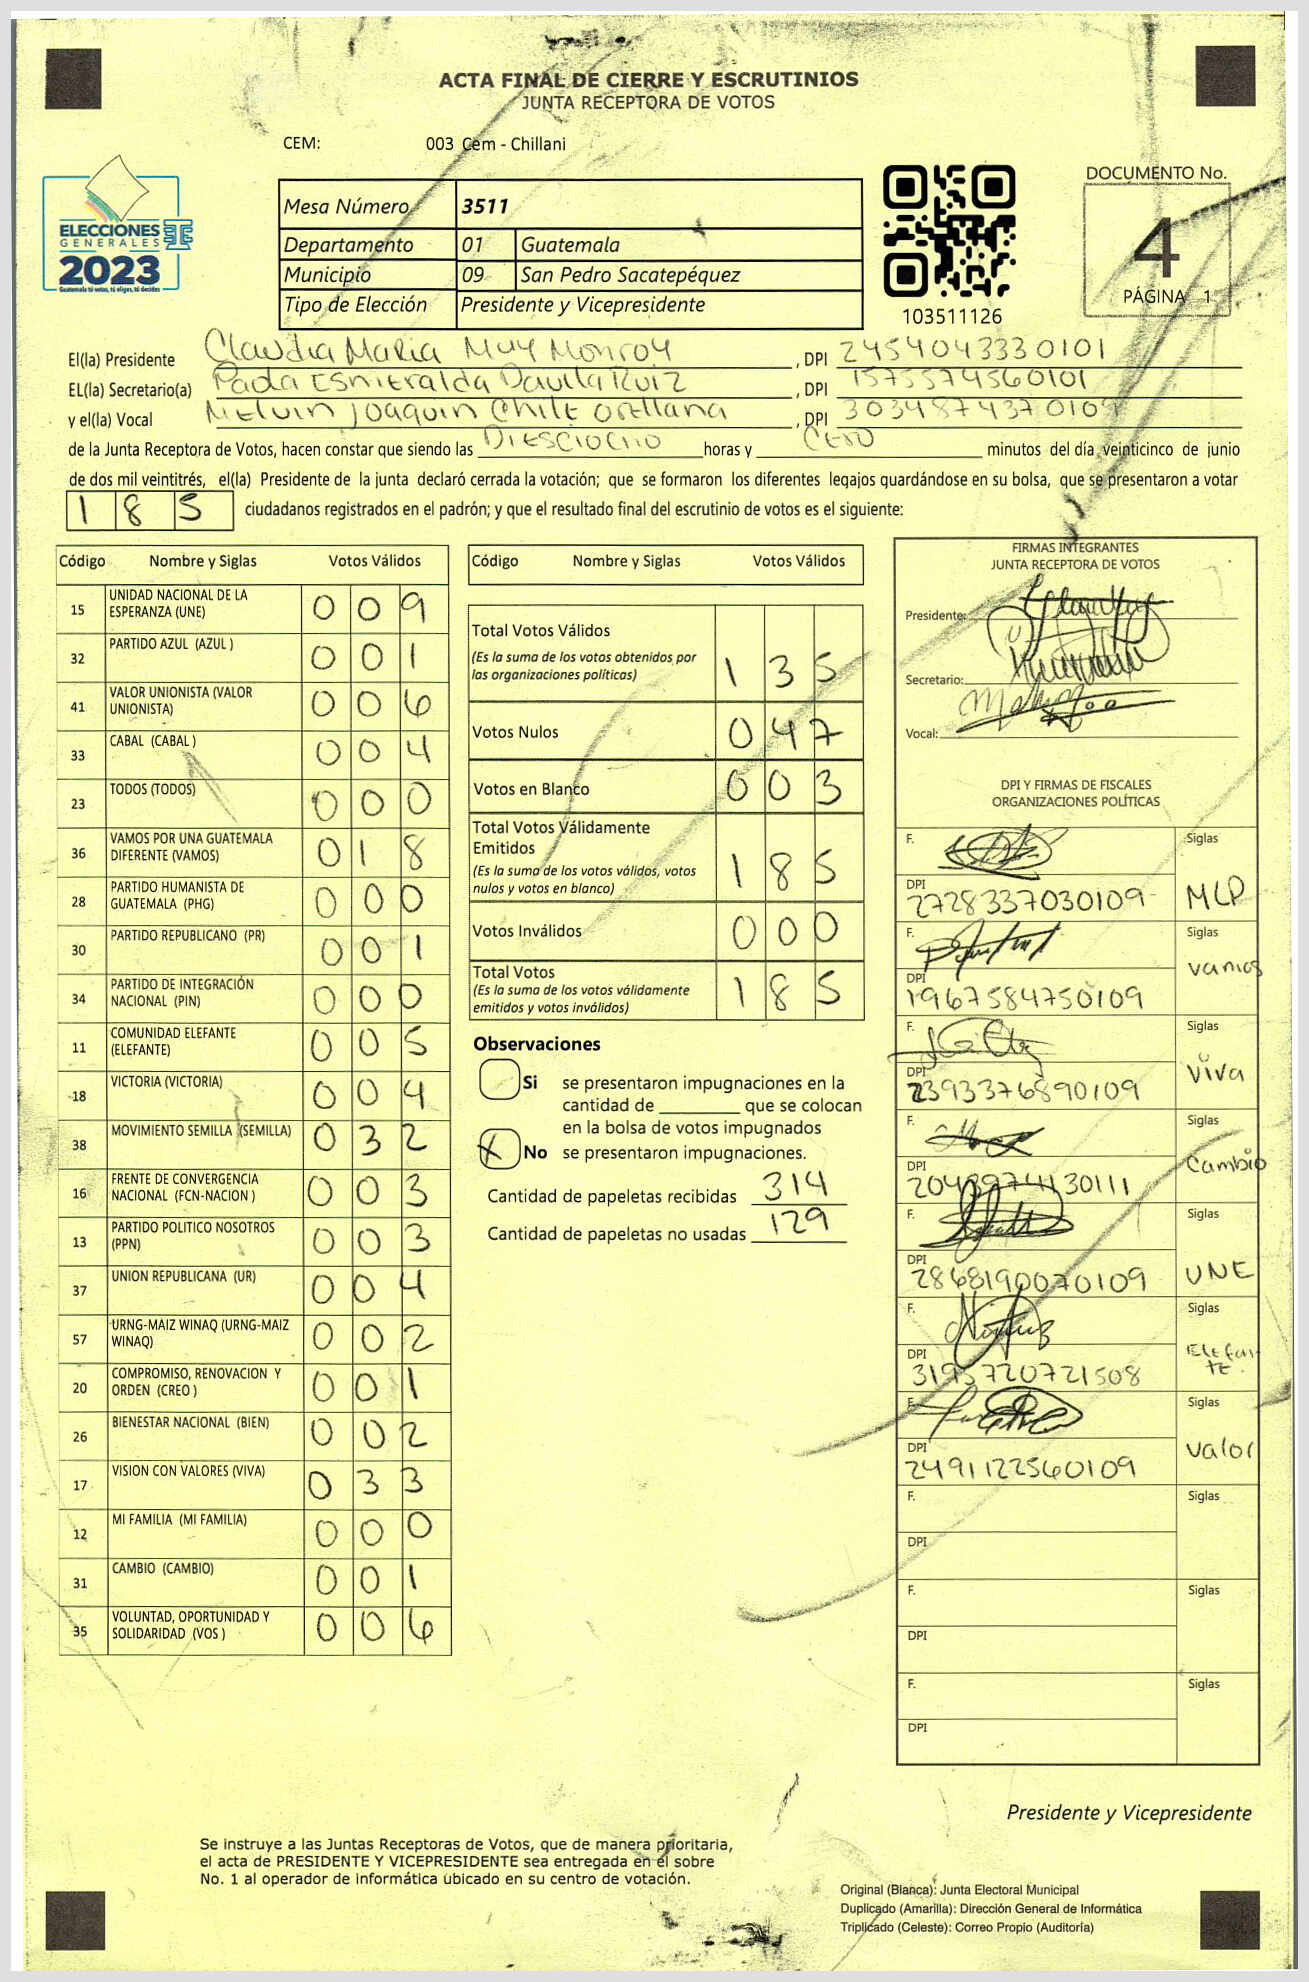 ACTA FINAL DE CIERRE Y ESCRUTINIOS
JUNTA RECEPTORA DE VOTOS
CEM: 003 Cem - Chillani
ELECCIONES
GENERALES
2023
Guatemala tú votas, tú eliges, tú decides
Mesa Número 3511
Departamento 01 Guatemala
Municipio 09 San Pedro Sacatepéquez
Tipo de Elección Presidente y Vicepresidente
103511126
DOCUMENTO No.
4
PÁGINA 1
El(la) Presidente Claudia Maria Muy Monroy , DPI 2454043330101
EL(la) Secretario(a) Paola Esmeralda Davila Ruiz , DPI 1575574560101
y el(la) Vocal Melvin Joaquin Chile Orellana , DPI 3034874370109
de la Junta Receptora de Votos, hacen constar que siendo las Diesciocho horas y Cero minutos del día veinticinco de junio
de dos mil veintitrés, el(la) Presidente de la junta declaró cerrada la votación; que se formaron los diferentes legajos quardándose en su bolsa, que se presentaron a votar
185 ciudadanos registrados en el padrón; y que el resultado final del escrutinio de votos es el siguiente:
Código Nombre y Siglas Votos Válidos
15 UNIDAD NACIONAL DE LA ESPERANZA (UNE) 009
32 PARTIDO AZUL (AZUL ) 001
41 VALOR UNIONISTA (VALOR UNIONISTA) 006
33 CABAL (CABAL ) 004
23 TODOS (TODOS) 000
36 VAMOS POR UNA GUATEMALA DIFERENTE (VAMOS) 018
28 PARTIDO HUMANISTA DE GUATEMALA (PHG) 000
30 PARTIDO REPUBLICANO (PR) 001
34 PARTIDO DE INTEGRACIÓN NACIONAL (PIN) 000
11 COMUNIDAD ELEFANTE (ELEFANTE) 005
18 VICTORIA (VICTORIA) 004
38 MOVIMIENTO SEMILLA (SEMILLA) 032
16 FRENTE DE CONVERGENCIA NACIONAL (FCN-NACION ) 003
13 PARTIDO POLITICO NOSOTROS (PPN) 003
37 UNION REPUBLICANA (UR) 004
57 URNG-MAIZ WINAQ (URNG-MAIZ WINAQ) 002
20 COMPROMISO, RENOVACION Y ORDEN (CREO ) 001
26 BIENESTAR NACIONAL (BIEN) 002
17 VISION CON VALORES (VIVA) 033
12 MI FAMILIA (MI FAMILIA) 000
31 CAMBIO (CAMBIO) 001
35 VOLUNTAD, OPORTUNIDAD Y SOLIDARIDAD (VOS ) 006
Código Nombre y Siglas Votos Válidos
Total Votos Válidos 135
(Es la suma de los votos obtenidos por
las organizaciones políticas)
Votos Nulos 047
Votos en Blanco 003
Total Votos Válidamente
Emitidos 185
(Es la suma de los votos válidos, votos
nulos y votos en blanco)
Votos Inválidos 000
Total Votos 185
(Es la suma de los votos válidamente
emitidos y votos inválidos)
Observaciones
Si se presentaron impugnaciones en la
cantidad de ________ que se colocan
en la bolsa de votos impugnados
X No se presentaron impugnaciones.
Cantidad de papeletas recibidas 314
Cantidad de papeletas no usadas 129
FIRMAS INTEGRANTES
JUNTA RECEPTORA DE VOTOS
Presidente:
Secretario:
Vocal:
DPI Y FIRMAS DE FISCALES
ORGANIZACIONES POLÍTICAS
F. Siglas
DPI 2728337030109 MLP
F. Siglas
DPI 1967584750109 vamos
F. Siglas
DPI 2393376890109 Viva
F. Siglas
DPI Cambio
F. Siglas
DPI 2868190070109 UNE
F. Siglas
DPI 3195720721508 Elefante
F. Siglas
DPI 2491122560109 Valor
F. Siglas
DPI
F. Siglas
DPI
F. Siglas
DPI
Presidente y Vicepresidente
Se instruye a las Juntas Receptoras de Votos, que de manera prioritaria,
el acta de PRESIDENTE Y VICEPRESIDENTE sea entregada en el sobre
No. 1 al operador de informática ubicado en su centro de votación.
Original (Blanca): Junta Electoral Municipal
Duplicado (Amarilla): Dirección General de Informática
Triplicado (Celeste): Correo Propio (Auditoría)